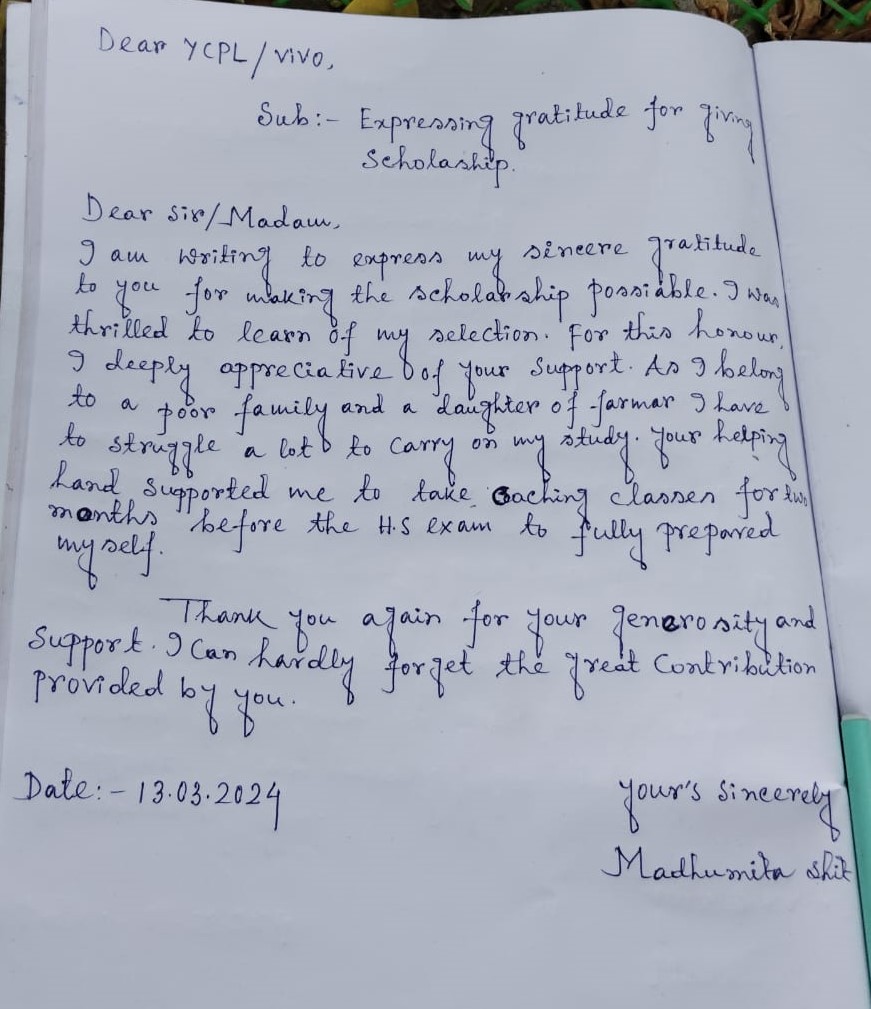 Dear YCPL/vivo,
Sub:- Expressing gratitude for giving
Scholaship.
Dear Sir/Madam,
I am writing to express my sincere gratitude
to you for making the scholarship possiable. I was
thrilled to learn of my selection. For this honour,
I deeply appreciative of your support. As I belong
to a poor family and a daughter of farmar I have
to struggle a lot to carry on my study. Your helping
hand supported me to take coaching classes for two
months before the H.S exam to fully prepared
myself.
Thank you again for your generosity and
Support. I Can hardly forget the great Contribution
provided by you.
Date:- 13.03.2024
your's sincerely
Madhumita Shit